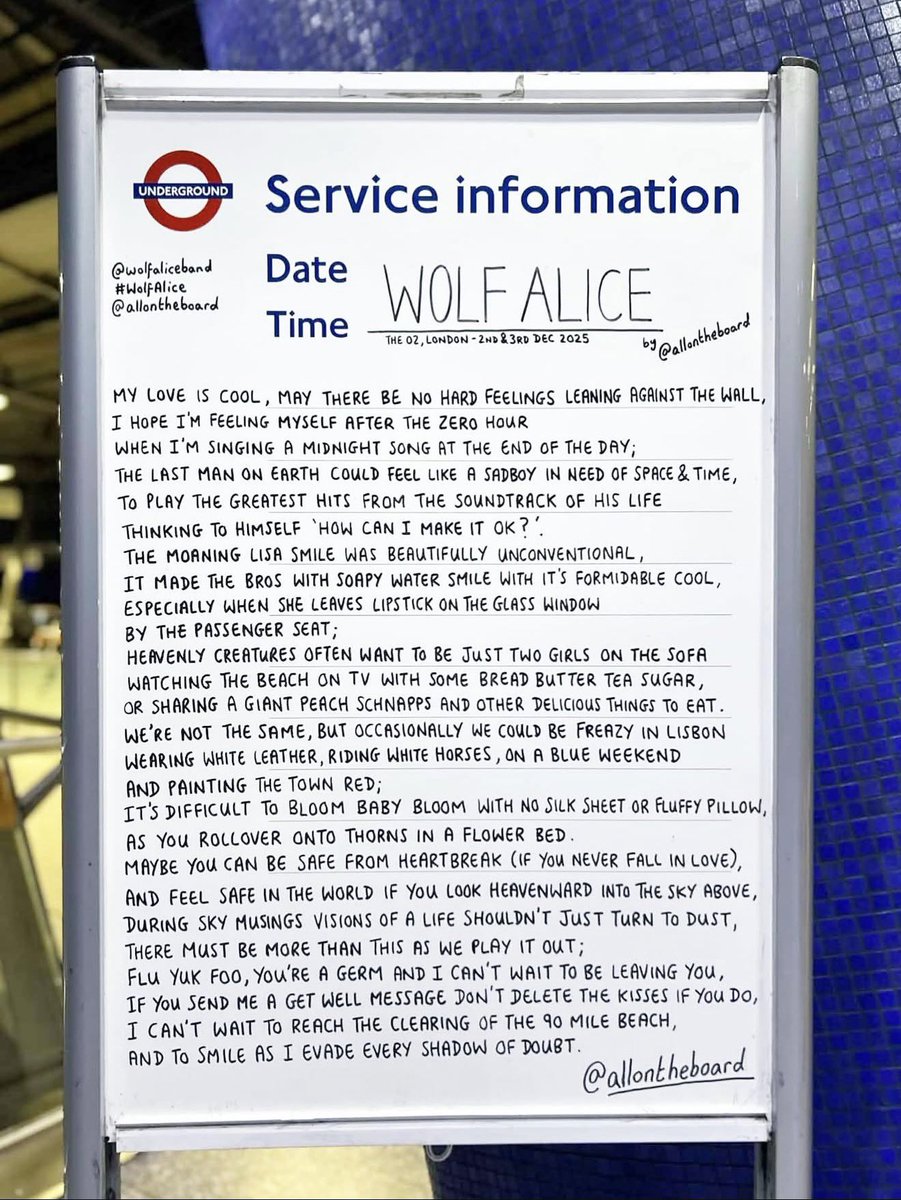 UNDERGROUND
Service information
@wolfaliceband
#WolfAlice
@allontheboard
Date
Time
WOLF ALICE
THE O2, LONDON - 2ND & 3RD DEC 2025
by @allontheboard
MY LOVE IS COOL, MAY THERE BE NO HARD FEELINGS LEANING AGAINST THE WALL,
I HOPE I'M FEELING MYSELF AFTER THE ZERO HOUR
WHEN I'M SINGING A MIDNIGHT SONG AT THE END OF THE DAY;
THE LAST MAN ON EARTH COULD FEEL LIKE A SADBOY IN NEED OF SPACE & TIME,
TO PLAY THE GREATEST HITS FROM THE SOUNDTRACK OF HIS LIFE
THINKING TO HIMSELF 'HOW CAN I MAKE IT OK?'.
THE MOANING LISA SMILE WAS BEAUTIFULLY UNCONVENTIONAL,
IT MADE THE BROS WITH SOAPY WATER SMILE WITH IT'S FORMIDABLE COOL,
ESPECIALLY WHEN SHE LEAVES LIPSTICK ON THE GLASS WINDOW
BY THE PASSENGER SEAT;
HEAVENLY CREATURES OFTEN WANT TO BE JUST TWO GIRLS ON THE SOFA
WATCHING THE BEACH ON TV WITH SOME BREAD BUTTER TEA SUGAR,
OR SHARING A GIANT PEACH SCHNAPPS AND OTHER DELICIOUS THINGS TO EAT.
WE'RE NOT THE SAME, BUT OCCASIONALLY WE COULD BE FREAZY IN LISBON
WEARING WHITE LEATHER, RIDING WHITE HORSES, ON A BLUE WEEKEND
AND PAINTING THE TOWN RED;
IT'S DIFFICULT TO BLOOM BABY BLOOM WITH NO SILK SHEET OR FLUFFY PILLOW,
AS YOU ROLLOVER ONTO THORNS IN A FLOWER BED.
MAYBE YOU CAN BE SAFE FROM HEARTBREAK (IF YOU NEVER FALL IN LOVE),
AND FEEL SAFE IN THE WORLD IF YOU LOOK HEAVENWARD INTO THE SKY ABOVE,
DURING SKY MUSINGS VISIONS OF A LIFE SHOULDN'T JUST TURN TO DUST,
THERE MUST BE MORE THAN THIS AS WE PLAY IT OUT;
FLU YUK FOO, YOU'RE A GERM AND I CAN'T WAIT TO BE LEAVING YOU,
IF YOU SEND ME A GET WELL MESSAGE DON'T DELETE THE KISSES IF YOU DO,
I CAN'T WAIT TO REACH THE CLEARING OF THE 90 MILE BEACH,
AND TO SMILE AS I EVADE EVERY SHADOW OF DOUBT.
@allontheboard